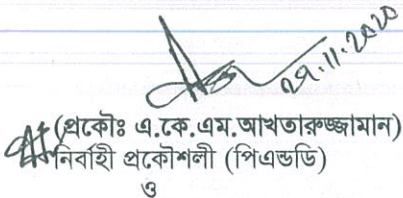 ২৯.১১.২০২০
(প্রকৌঃ এ.কে.এম.আখতারুজ্জামান)
নির্বাহী প্রকৌশলী (পিএন্ডডি)
ও